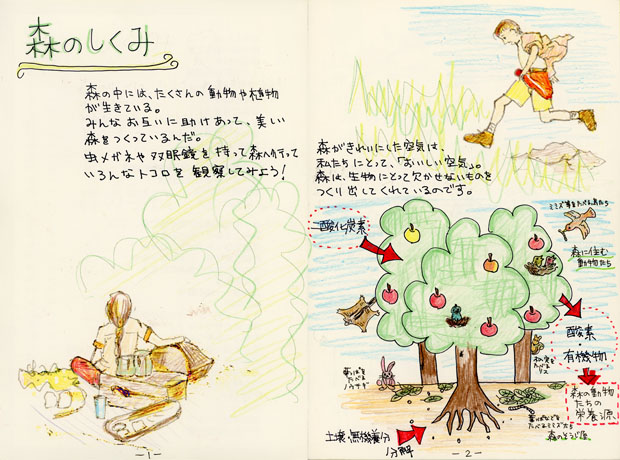 森のしくみ
森の中には、たくさんの動物や植物
が生きている。
みんなお互いに助けあって、美しい
森をつくっているんだ。
虫メガネや双眼鏡を持って森へ行って
いろんなトコロを観察してみよう!
-1-
森がきれいにした空気は、
私たちにとって、「おいしい空気」。
森は、生物にとって欠かせないものを
つくり出してくれているのです。
二酸化炭素
ミミズ等をたべる鳥たち
森に住む
動物たち
酸素
・
有機物
木の実を
たべる
リス
葉っぱを
たべる
ノウサギ
森の動物
たちの
栄養源
葉っぱなどを
たべるミミズたち
森のそうじ屋
土壌・無機養分
分解
-2-